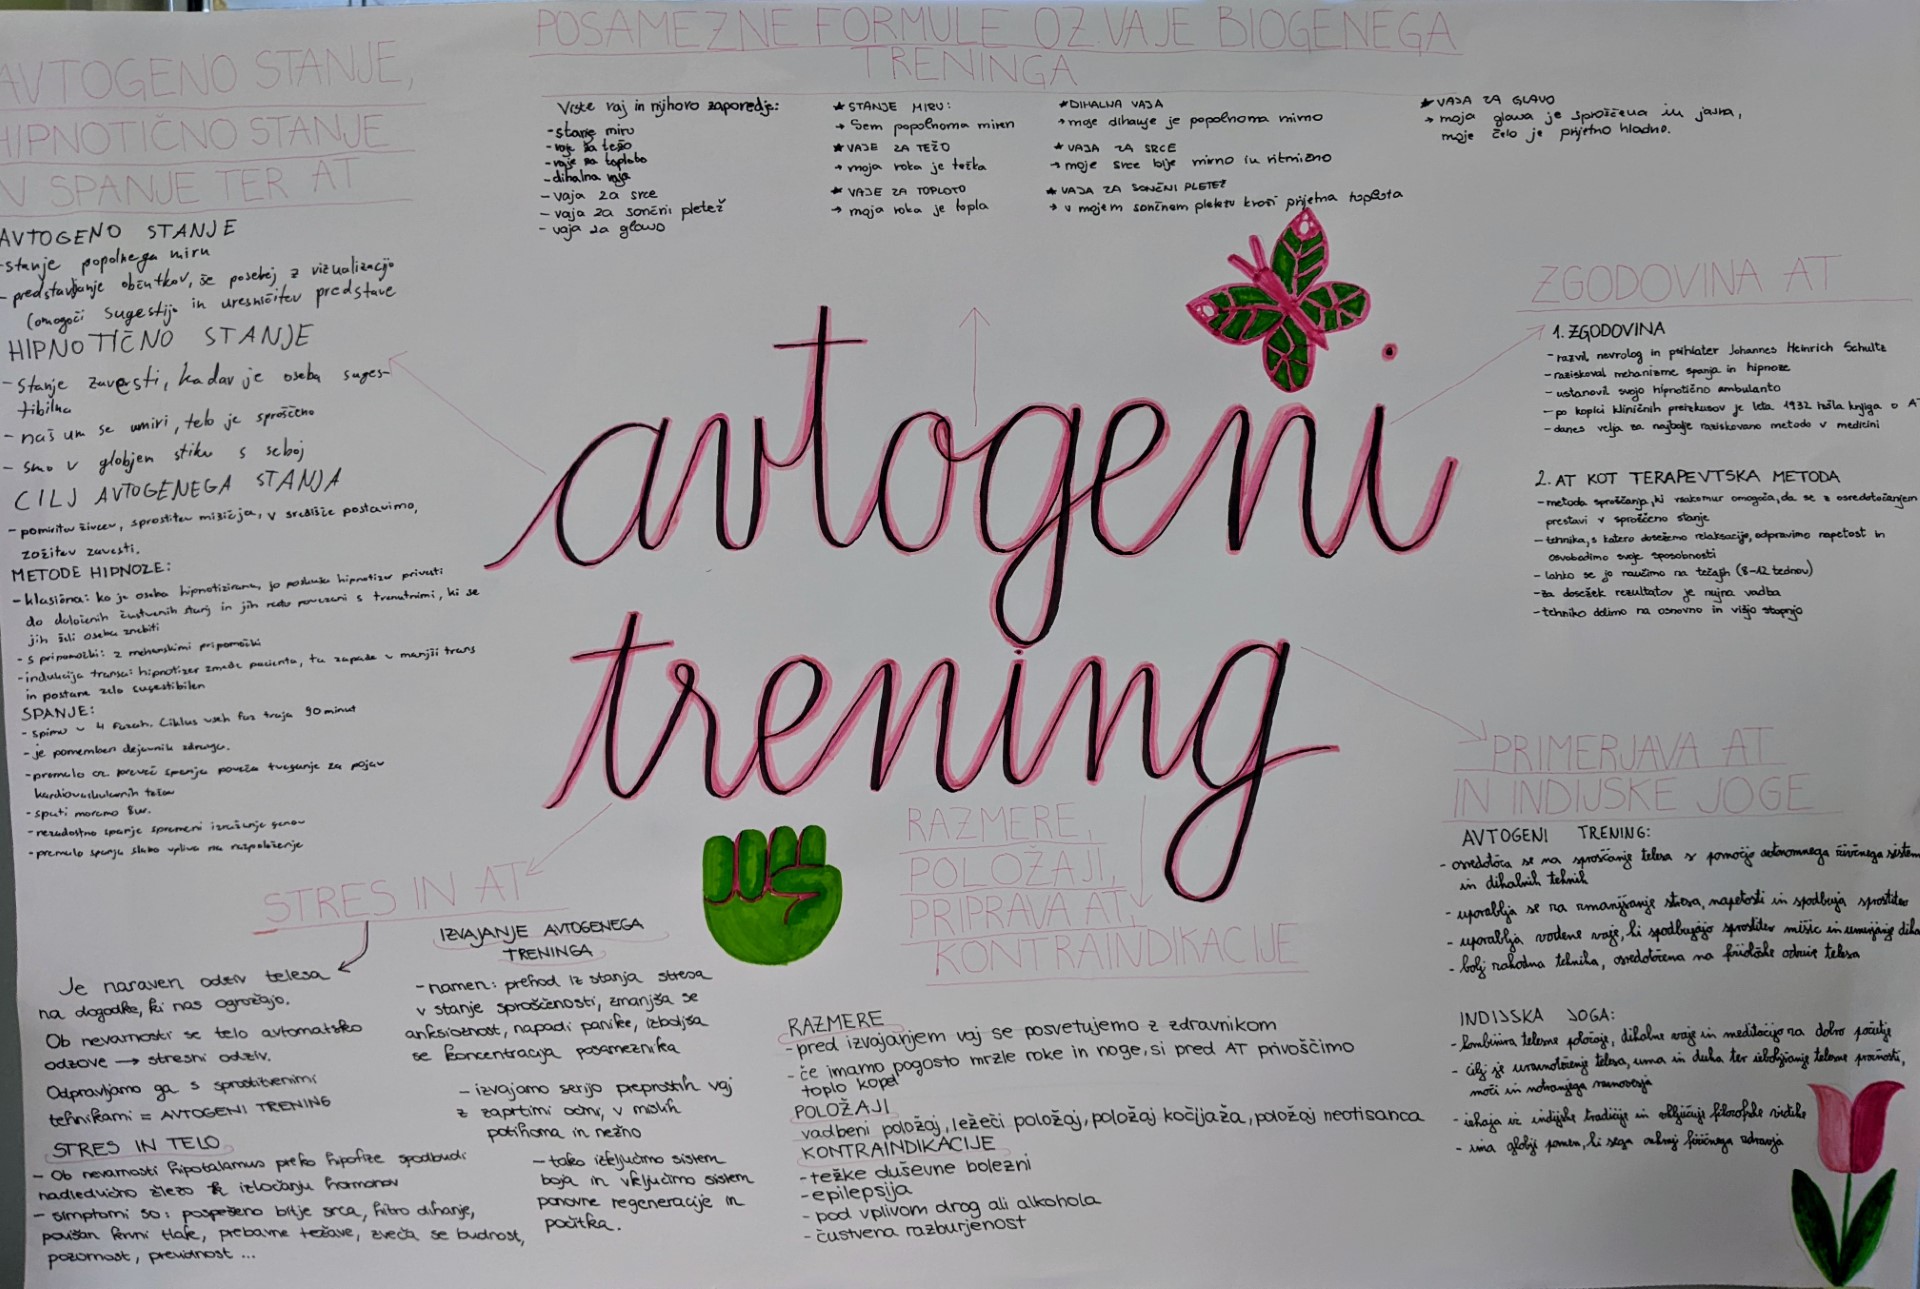 POSAMEZNE FORMULE OZ. VAJE BIOGENEGA
TRENINGA
Vrste vaj in njihovo zaporedje:
- stanje miru
- vaje za težo
- vaje za toploto
- dihalna vaja
- vaja za srce
- vaja za sončni pletež
- vaja za glavo
★ STANJE MIRU:
→ Sem popolnoma miren
★ VAJE ZA TEŽO
→ moja roka je težka
★ VAJE ZA TOPLOTO
→ moja roka je topla
★ DIHALNA VAJA
→ moje dihanje je popolnoma mirno
★ VAJA ZA SRCE
→ moje srce bije mirno in ritmično
★ VAJA ZA SONČNI PLETEŽ
→ v mojem sončnem pletežu kroži prijetna toplota
★ VAJA ZA GLAVO
→ moja glava je sproščena in jasna,
moje čelo je prijetno hladno.
AVTOGENO STANJE,
HIPNOTIČNO STANJE
IN SPANJE TER AT
AVTOGENO STANJE
- stanje popolnega miru
- predstavljanje občutkov, še posebej z vizualizacijo
(omogoči sugestijo in uresničitev predstave
HIPNOTIČNO STANJE
- stanje zavesti, kadar je oseba suges-
tibilna
- naš um se umiri, telo je sproščeno
- smo v globjem stiku s seboj
CILJ AVTOGENEGA STANJA
- pomiritev živcev, sprostitev mišičja, v središče postavimo,
zožitev zavesti.
METODE HIPNOZE:
- klasična: ko je oseba hipnotizirana, jo poskuša hipnotizer privesti
do določenih čustvenih stanj in jih nato povezani s trenutnimi, ki se
jih želi oseba znebiti
- s pripomočki: z mehanskimi pripomočki
- indukcija transa: hipnotizer zmede pacienta, ta zapade v manjši trans
in postane zelo sugestibilen
SPANJE:
- spimo v 4 fazah. Ciklus vseh faz traja 90 minut
- je pomemben dejavnik zdravja.
- premalo oz. preveč spanja poveča tveganje za pojav
kardiovaskularnih težav
- spati moramo 8ur.
- nezadostno spanje spremeni izražanje genov
- premalo spanja slabo vpliva na razpoloženje
avtogeni
trening
ZGODOVINA AT
1. ZGODOVINA
- razvil nevrolog in psihiater Johannes Heinrich Schultz
- raziskoval mehanizme spanja in hipnoze
- ustanovil svojo hipnotično ambulanto
- po kopici kliničnih preizkusov je leta 1932 izšla knjiga o AT
- danes velja za najbolje raziskovano metodo v medicini
2. AT KOT TERAPEVTSKA METODA
- metoda sproščanja, ki vsakomur omogoča, da se z osredotočanjem
prestavi v sproščeno stanje
- tehnika, s katero dosežemo relaksacijo, odpravimo napetost in
osvobodimo svoje sposobnosti
- lahko se jo naučimo na tečajih (8-12 tednov)
- za dosežek rezultatov je nujna vadba
- tehniko delimo na osnovno in višjo stopnjo
PRIMERJAVA AT
IN INDIJSKE JOGE
AVTOGENI TRENING:
- osredotoča se na sproščanje telesa s pomočjo avtonomnega živčnega sistema
in dihalnih tehnik
- uporablja se za zmanjšanje stresa, napetosti in spodbuja sprostitev
- uporablja vodene vaje, ki spodbujajo sprostitev mišic in umirjanje diha
- bolj zahodna tehnika, osredotočena na fiziološke odzive telesa
INDIJSKA JOGA:
- kombinira telesne položaje, dihalne vaje in meditacijo za dobro počutje
- cilj je uravnoteženje telesa, uma in duha ter izboljšanje telesne prožnosti,
moči in notranjega ravnovesja
- izhaja iz indijske tradicije in vključuje filozofske vidike
- ima globlji pomen, ki sega onkraj fizičnega zdravja
STRES IN AT
Je naraven odziv telesa
na dogodke, ki nas ogrožajo.
Ob nevarnosti se telo avtomatsko
odzove → stresni odziv.
Odpravljamo ga s sprostitvenimi
tehnikami = AVTOGENI TRENING
STRES IN TELO
- Ob nevarnosti hipotalamus preko hipofize spodbudi
nadledvično žlezo k izločanju hormonov
- simptomi so: pospešeno bitje srca, hitro dihanje,
povišan krvni tlak, prebavne težave, zveča se budnost,
pozornost, previdnost ...
IZVAJANJE AVTOGENEGA
TRENINGA
- namen: prehod iz stanja stresa
v stanje sproščenosti, zmanjša se
anksioznost, napadi panike, izboljša
se koncentracija posameznika
- izvajamo serijo preprostih vaj
z zaprtimi očmi, v mislih
potihoma in nežno
- tako izključimo sistem
boja in vključimo sistem
ponovne regeneracije in
počitka.
RAZMERE,
POLOŽAJI,
PRIPRAVA AT,
KONTRAINDIKACIJE
RAZMERE
- pred izvajanjem vaj se posvetujemo z zdravnikom
- če imamo pogosto mrzle roke in noge, si pred AT privoščimo
toplo kopel
POLOŽAJI
vadbeni položaj, ležeči položaj, položaj kočijaža, položaj neotisanca
KONTRAINDIKACIJE
- težke duševne bolezni
- epilepsija
- pod vplivom drog ali alkohola
- čustvena razburjenost